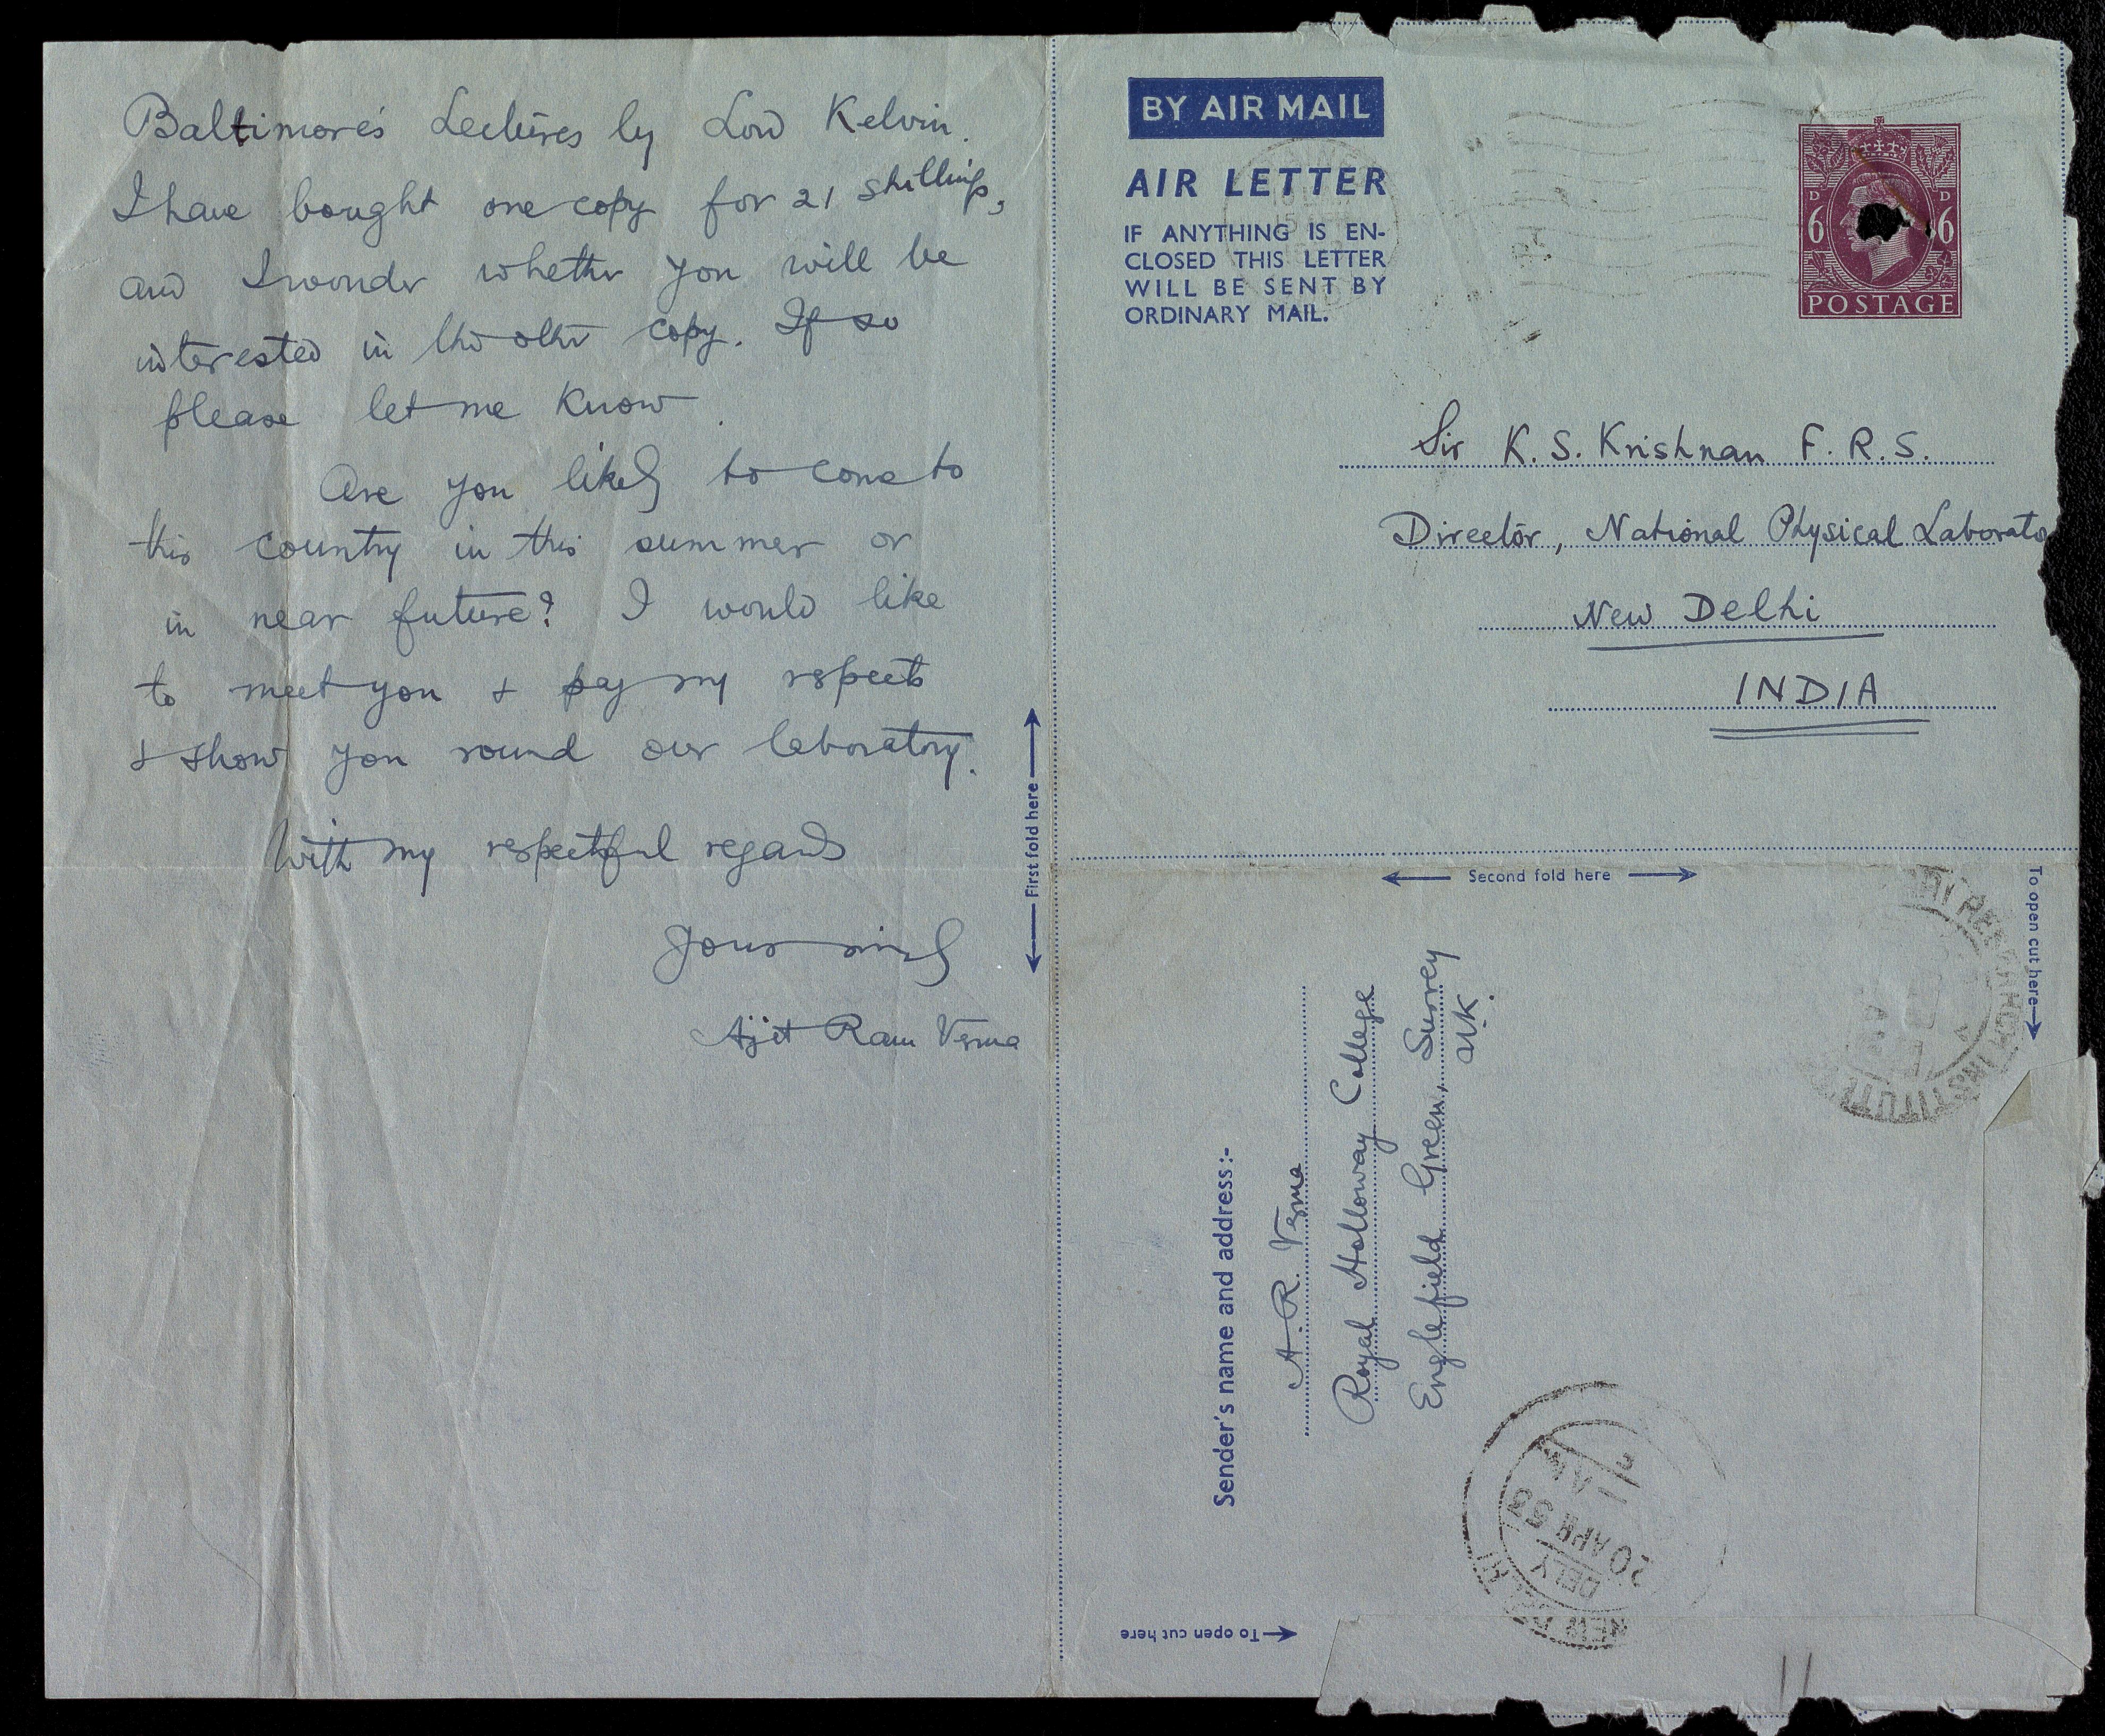 Baltimore's Lectures by Lord Kelvin.
I have bought one copy for 21 shillings,
and I wonder whether you will be
interested in the other copy. If so
please let me know.
Are you likely to come to
this country in this summer or
in near future? I would like
to meet you & pay my respects
& show you round our laboratory.
With my respectful regards
Yours sincly
Ajit Ram Verma
First fold here
BY AIR MAIL
AIR LETTER
IF ANYTHING IS EN-
CLOSED THIS LETTER
WILL BE SENT BY
ORDINARY MAIL.
D D
6 6
POSTAGE
Sir K. S. Krishnan F. R. S.
Director, National Physical Laborato
New Delhi
INDIA
Second fold here
To open cut here
Sender's name and address:-
A. R. Verma
Royal Holloway College
Englefield Green, Surrey
U.K.
NEW DELHI
DELY
20 APR 53
To open cut here